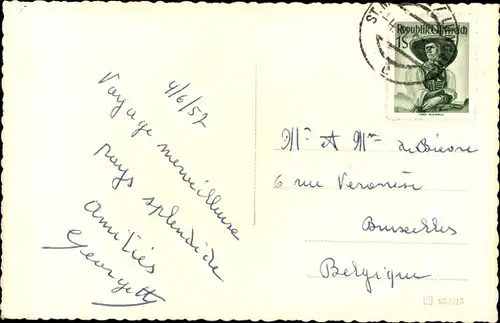 4/6/57
Voyage merveilleuse
pays splendide
amitiés
Georgette
Mr et Mme de Bièvre
6 rue Veronèse
Bruxelles
Belgique
Republik Österreich
1S
ST.